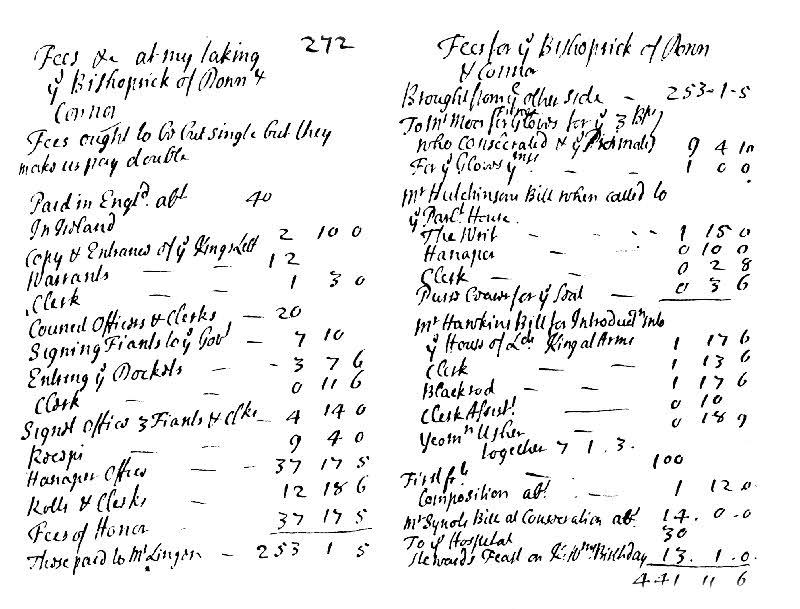 Fees &c at my taking 272
yͤ Bishoprick of Donn &
Connor
Fees ought to be but single but they
makes us pay double
Paid in Engld. abt 40
In Ireland
Copy & Entrance of yͤ Kings Lett 2 10 0
Warrants — — 12
Clerk — — 1 3 0
Councel Officers & Clerks — 20
Signing Fiants to yͤ Govt — 7 10
Entring yͤ Dockets — - 3 7 6
Clerk — — 0 11 6
Signet Office 3 Fiants & Clks — 4 14 0
Receipt — — 9 4 0
Hanaper Office — — 37 17 5
Rolls & Clerks — 12 18 6
Fees of Honor — 37 17 5
These paid to Mr Lingen — 253 1 5
Fees for yͤ Bishoprick of Donn
& Connor
Brought from yͤ other side — 253-1-5
To Mr Moor for yͤ Gloves for yͤ 3 Bps
who consecrated & yͤ Primates 9 4 10
For yͤ Gloves — — 1 0 0
Mr Hutchinson Bill when called to
yͤ Parlt House.
The Writ — — 1 15 0
Hanaper — — 0 10 0
Clerk — — 0 2 8
Purse Bearer for yͤ Seal — 0 3 6
Mr Hawkins Bill for Introductn into
yͤ House of Lds King at Arms 1 17 6
Clerk — — 1 13 6
Blackrod — — 1 17 6
Clerk Assist. — 0 10
Yeomn Usher — 0 18 9
together 7 1 3.
First fr. — 100
Composition abt. — 1 12 0
Mr Synots Bill at Consecration abt. 14. 0. 0
To yͤ Hospital 30
Stewards Feast on Birthday 13. 1. 0.
441 11 6